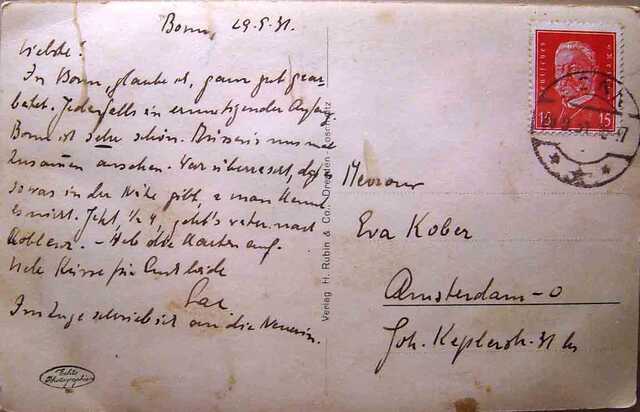 Bonn, 29.5.31.
Liebste!
In Bonn, glaube ich, ganz gut gear-
beitet. Jedenfalls ein ermutigender Anfang.
Bonn ist sehr schön. Müssen's uns mal
zusammen ansehen. War überrascht, daß
sowas in der Nähe gibt, & man kennt
es nicht. Jetzt, ½ 4, geht's weiter nach
Koblenz. - Heb die Karten auf.
Viele Küsse für Euch beide
Im Zuge schrieb ich an die
Mevrouw
Eva Kober
Amsterdam-O
Joh. Keplerstr. 31 hs
Verlag H. Rubin & Co., Dresden
DEUTSCHES REICH
15 15
Echte
Photographie